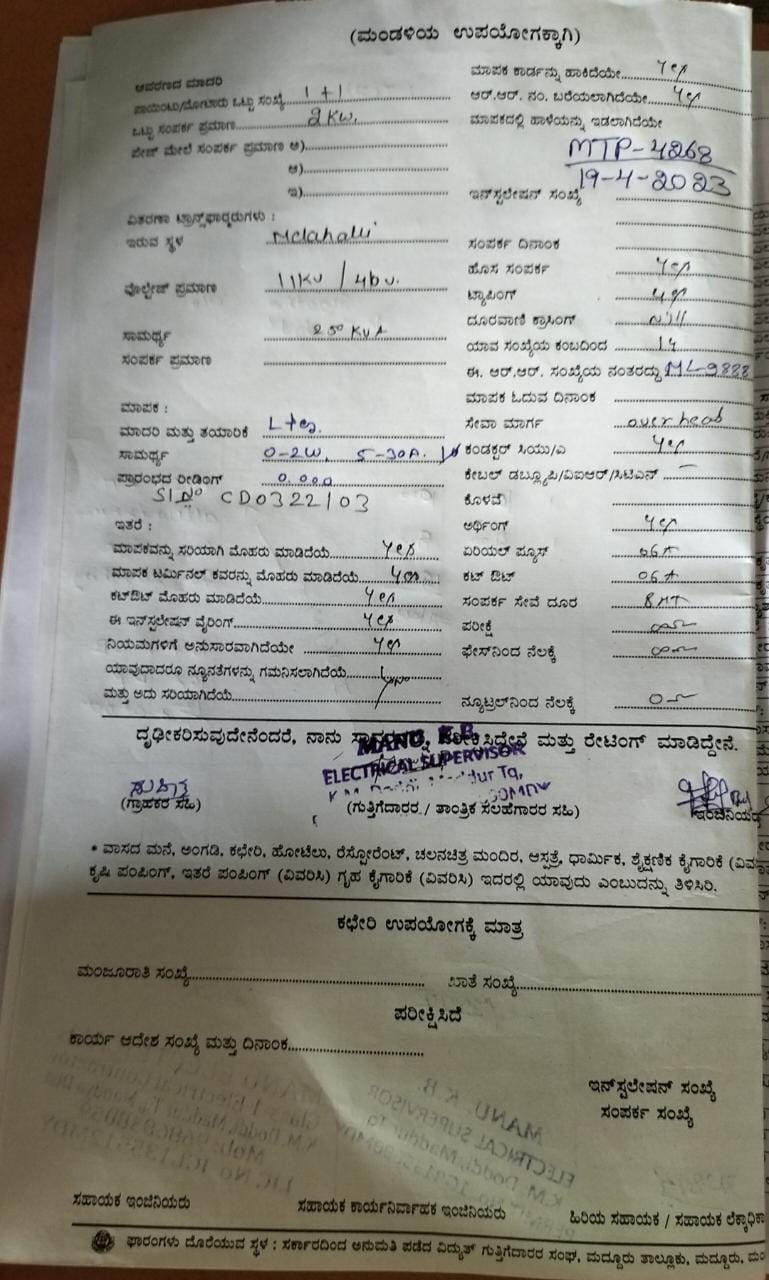 (ಮಂಡಳಿಯ ಉಪಯೋಗಕ್ಕಾಗಿ)
ಆವರಣದ ಮಾದರಿ
ಪಾಯಿಂಟು/ಮೋಟಾರು ಒಟ್ಟು ಸಂಖ್ಯೆ 1+1
ಒಟ್ಟು ಸಂಪರ್ಕ ಪ್ರಮಾಣ 2 KW.
ಪೇಜ್ ಮೇಲೆ ಸಂಪರ್ಕ ಪ್ರಮಾಣ ಅ)
ಆ)
ಇ)
ವಿತರಣಾ ಟ್ರಾನ್ಸ್‌ಫಾರ್‍ಮರುಗಳು :
ಇರುವ ಸ್ಥಳ Melahalli
ವೋಲ್ಟೇಜ್ ಪ್ರಮಾಣ 11KV /
ಸಾಮರ್ಥ್ಯ 250 KVA
ಸಂಪರ್ಕ ಪ್ರಮಾಣ
ಮಾಪಕ :
ಮಾದರಿ ಮತ್ತು ತಯಾರಿಕೆ
ಸಾಮರ್ಥ್ಯ 0-2W, 5-30A.
ಪ್ರಾರಂಭದ ರೀಡಿಂಗ್ 0.000
Sl No CD0322103
ಇತರೆ :
ಮಾಪಕವನ್ನು ಸರಿಯಾಗಿ ಮೊಹರು ಮಾಡಿದೆಯೆ Yes
ಮಾಪಕ ಟರ್ಮಿನಲ್ ಕವರನ್ನು ಮೊಹರು ಮಾಡಿದೆಯೆ Yes
ಕಟ್‌ಔಟ್ ಮೊಹರು ಮಾಡಿದೆಯೆ Yes
ಈ ಇನ್‌ಸ್ಟಲೇಷನ್ ವೈರಿಂಗ್ Yes
ನಿಯಮಗಳಿಗೆ ಅನುಸಾರವಾಗಿದೆಯೇ Yes
ಯಾವುದಾದರೂ ನ್ಯೂನತೆಗಳನ್ನು ಗಮನಿಸಲಾಗಿದೆಯೆ
ಮತ್ತು ಅದು ಸರಿಯಾಗಿದೆಯೆ
ಮಾಪಕ ಕಾರ್ಡನ್ನು ಹಾಕಿದೆಯೇ Yes
ಆರ್.ಆರ್. ನಂ. ಬರೆಯಲಾಗಿದೆಯೇ Yes
ಮಾಪಕದಲ್ಲಿ ಹಾಳೆಯನ್ನು ಇಡಲಾಗಿದೆಯೇ
MTP-4268
19-4-2023
ಇನ್‌ಸ್ಟಲೇಷನ್ ಸಂಖ್ಯೆ
ಸಂಪರ್ಕ ದಿನಾಂಕ
ಹೊಸ ಸಂಪರ್ಕ Yes
ಟ್ಯಾಪಿಂಗ್ Yes
ದೂರವಾಣಿ ಕ್ರಾಸಿಂಗ್ Nill
ಯಾವ ಸಂಖ್ಯೆಯ ಕಂಬದಿಂದ 14
ಈ. ಆರ್.ಆರ್. ಸಂಖ್ಯೆಯ ನಂತರದ್ದು ML-9888
ಮಾಪಕ ಓದುವ ದಿನಾಂಕ
ಸೇವಾ ಮಾರ್ಗ over head
ಕಂಡಕ್ಟರ್ ಸಿಯು/ಎ Yes
ಕೇಬಲ್ ಡಬ್ಲ್ಯೂಪಿ/ವಿಐಆರ್/ಸಿಟಿಎಸ್ —
ಕೊಳವೆ
ಅರ್ಥಿಂಗ್ Yes
ಏರಿಯಲ್ ಪ್ಯೂಸ್ 06A
ಕಟ್ ಔಟ್ 06A
ಸಂಪರ್ಕ ಸೇವೆ ದೂರ 8MT
ಪರೀಕ್ಷೆ
ಫೇಸ್‌ನಿಂದ ನೆಲಕ್ಕೆ
ನ್ಯೂಟ್ರಲ್‌ನಿಂದ ನೆಲಕ್ಕೆ
ದೃಢೀಕರಿಸುವುದೇನೆಂದರೆ, ನಾನು ಪರೀಕ್ಷಿಸಿದ್ದೇವೆ ಮತ್ತು ರೇಟಿಂಗ್ ಮಾಡಿದ್ದೇನೆ.
MANU, K.B.
ELECTRICAL SUPERVISOR
K.M. Doddi Maddur Tq,
(ಗ್ರಾಹಕರ ಸಹಿ) (ಗುತ್ತಿಗೆದಾರರ / ತಾಂತ್ರಿಕ ಸಲಹೆಗಾರರ ಸಹಿ)
* ವಾಸದ ಮನೆ, ಅಂಗಡಿ, ಕಛೇರಿ, ಹೋಟೆಲು, ರೆಸ್ಟೋರೆಂಟ್, ಚಲನಚಿತ್ರ ಮಂದಿರ, ಆಸ್ಪತ್ರೆ, ಧಾರ್ಮಿಕ, ಶೈಕ್ಷಣಿಕ ಕೈಗಾರಿಕೆ
ಕೃಷಿ ಪಂಪಿಂಗ್, ಇತರೆ ಪಂಪಿಂಗ್ (ವಿವರಿಸಿ) ಗೃಹ ಕೈಗಾರಿಕೆ (ವಿವರಿಸಿ) ಇದರಲ್ಲಿ ಯಾವುದು ಎಂಬುದನ್ನು ತಿಳಿಸಿರಿ.
ಕಛೇರಿ ಉಪಯೋಗಕ್ಕೆ ಮಾತ್ರ
ಮಂಜೂರಾತಿ ಸಂಖ್ಯೆ ಖಾತೆ ಸಂಖ್ಯೆ
ಪರೀಕ್ಷಿಸಿದೆ
ಕಾರ್ಯ ಆದೇಶ ಸಂಖ್ಯೆ ಮತ್ತು ದಿನಾಂಕ
ಇನ್‌ಸ್ಟಲೇಷನ್ ಸಂಖ್ಯೆ
ಸಂಪರ್ಕ ಸಂಖ್ಯೆ
ಸಹಾಯಕ ಇಂಜಿನಿಯರು ಸಹಾಯಕ ಕಾರ್ಯನಿರ್ವಾಹಕ ಇಂಜಿನಿಯರು ಹಿರಿಯ ಸಹಾಯಕ / ಸಹಾಯಕ ಲೆಕ್ಕಾಧಿಕಾ
ಫಾರಂಗಳು ದೊರೆಯುವ ಸ್ಥಳ : ಸರ್ಕಾರದಿಂದ ಅನುಮತಿ ಪಡೆದ ವಿದ್ಯುತ್ ಗುತ್ತಿಗೆದಾರರ ಸಂಘ, ಮದ್ದೂರು ತಾಲ್ಲೂಕು, ಮದ್ದೂರು,